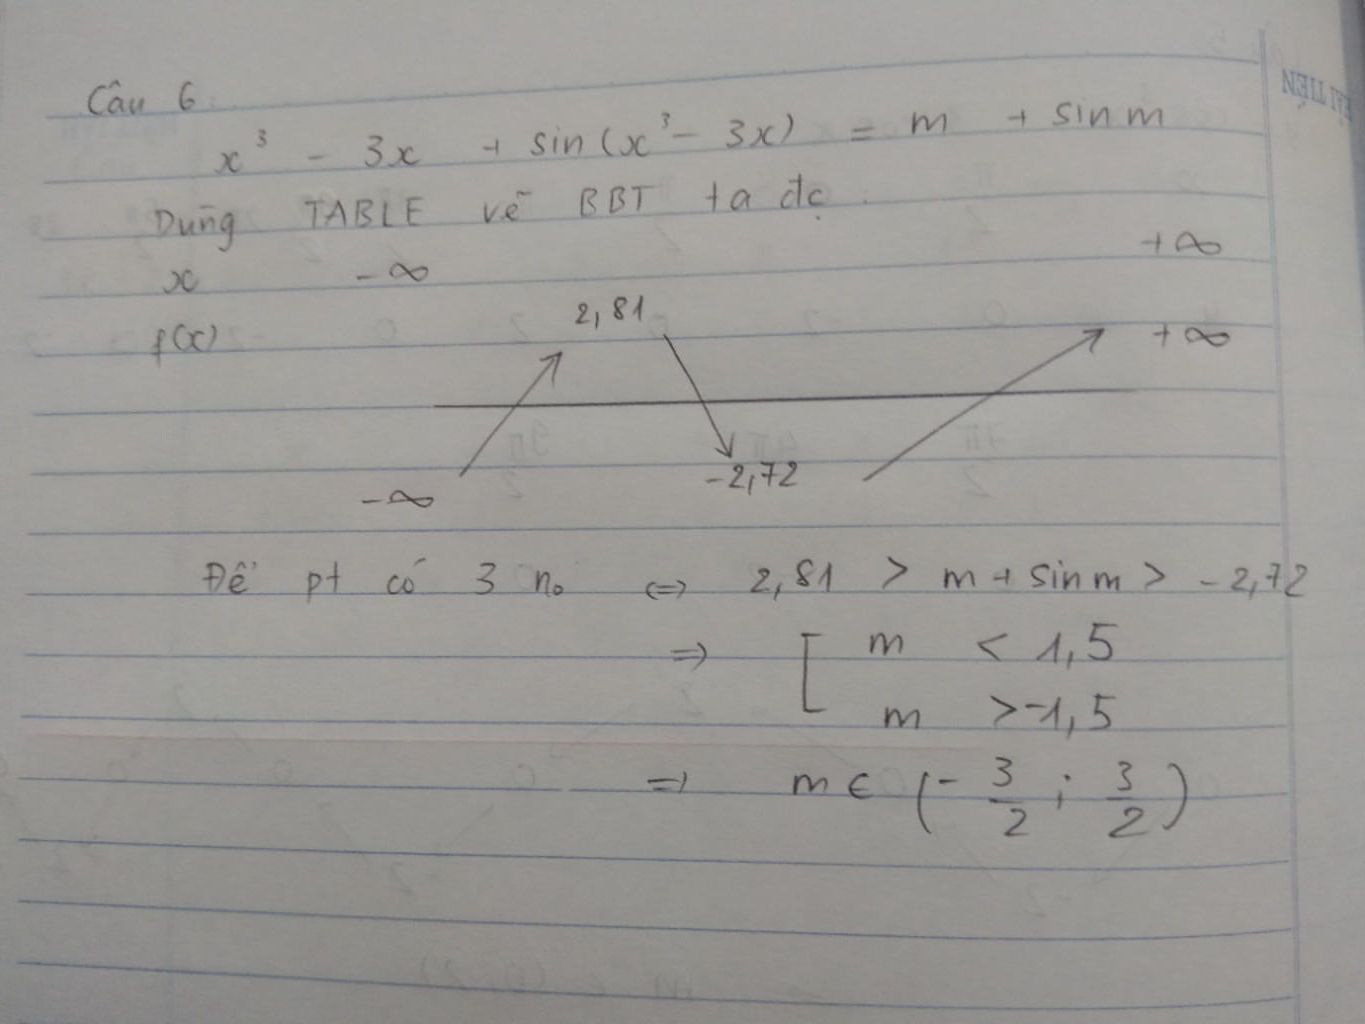 Câu 6
x³ - 3x + sin(x³ - 3x) = m + sin m
Dũng TABLE vẽ BBT ta đc
x -∞ +∞
f(x) 2,81 +∞
-∞ -2,72
Để pt có 3 n₀ <=> 2,81 > m + sin m > -2,72
=> [ m < 1,5
m > -1,5
=> m ∈ (-3/2 ; 3/2)